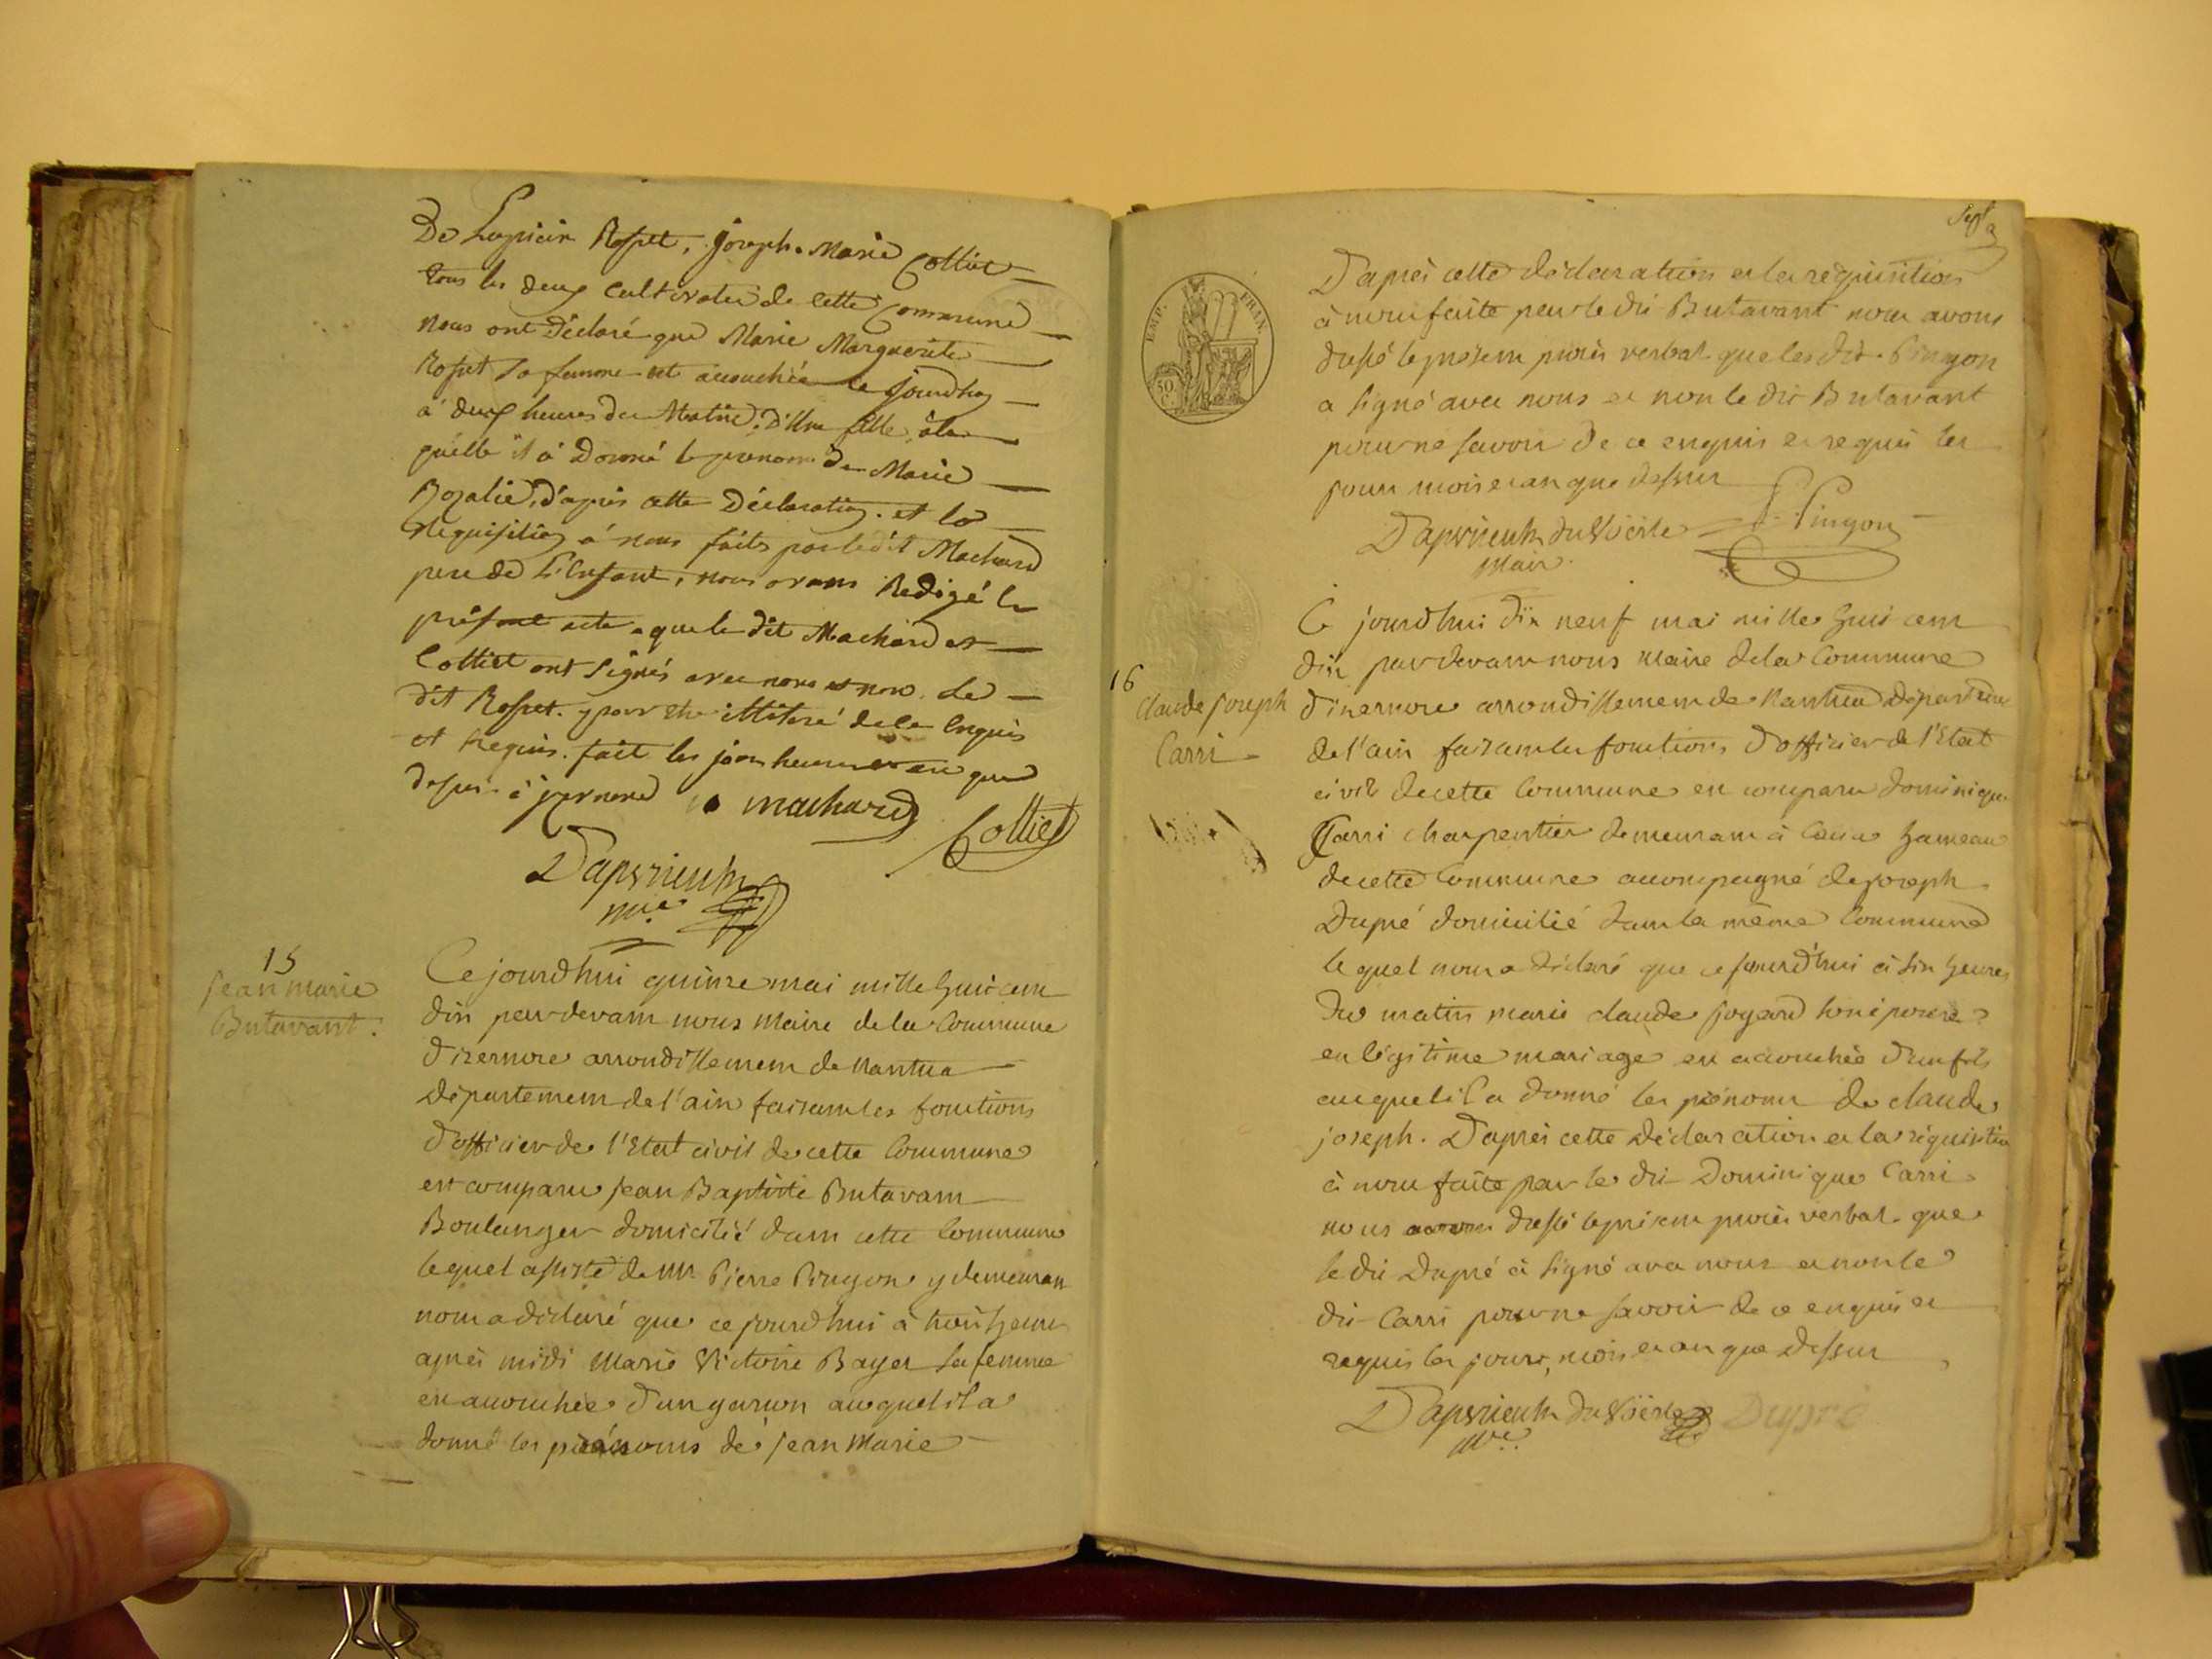 De Lupicin Rosset, joseph Marie Colliet
tous les deux Cultivateur de cette Commune
nous ont déclaré que Marie Marguerite
Rosset sa femme est acouchée ce jourdhuy
à deux heures du Matin d'Une fille, à la
quelle il à Donné le prenom de Marie
Rozalie, d'après cette Déclaration et la
Requisition à nous faite par ledit Machard
pere de L'Enfant, nous avons Redigé le
présent acte que le dit Machard et
Colliet ont Signés avec nous et non le
dit Rosset pour etre illiteré de ce Enquis
et Requis. fait les jour heure et an que
dessus à jzernore
machard
Colliet
Dapvrieulx
m.re
15
jean marie
Butavant.
Ce jourdhui quinze mai mille huit cent
dix par devant nous Maire de la Commune
d'izernore arrondissement de Nantua
département de l'ain faisant les fonctions
d'officier de l'Etat civil de cette Commune
est comparu jean Baptiste Butavant
Boulanger domicilié dans cette Commune
lequel assisté de Mr. Pierre Pingon y demeurant
nous a déclaré que ce jourdhui à trois heures
après midi Marie Victoire Bayer sa femme
est accouchée d'un garçon auquel il a
donné les prénoms de jean Marie
Sept
EMP. FRAN.
50 C.
D'après cette déclaration et la réquisition
à nous faite par le dit Butavant nous avons
dressé le présent procès verbal que le dit Pingon
a signé avec nous et non le dit Butavant
pour ne savoir de ce enquis et requis les
jour mois et an que dessus
Dapvrieulx du Viole P. Pingon
Maire
16
Claude joseph
Carri
Ce jourdhui dix neuf mai mille huit cent
dix par devant nous Maire de la Commune
d'izernore arrondissement de Nantua département
de l'ain faisant les fonctions d'officier de l'Etat
civil de cette Commune est comparu dominique
Carri charpentier demeurant à hameau
de cette Commune accompagné de joseph
Dupré domicilié dans la même Commune
lequel nous a déclaré que ce jourdhui à six heures
du matin marie claude jogard son épouse
en légitime mariage est accouchée d'un fils
auquel il a donné les prénoms de claude
joseph. D'après cette déclaration et la réquisition
à nous faite par le dit Dominique Carri
nous avons dressé le présent procès verbal que
le dit Dupré à signé avec nous et non le
dit Carri pour ne savoir de ce enquis et
requis les jours, mois et an que dessus
Dapvrieulx du Viole Dupré
M.re